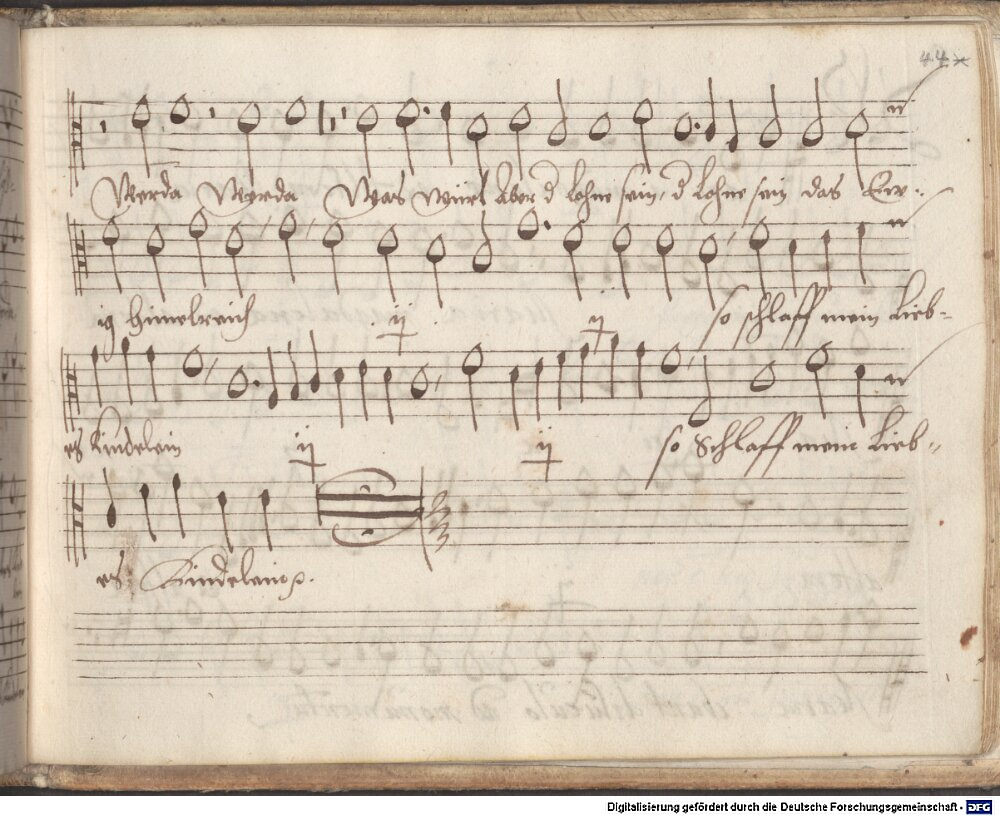 44
Werda Werda Was Würt aber d lohne sein, d lohne sein das Ew-:
ig himelreich ij ij so schlaff mein Lieb-
es kindelein ij ij so Schlaff mein Lieb-
es Kindelein
Digitalisierung gefördert durch die Deutsche Forschungsgemeinschaft - DFG